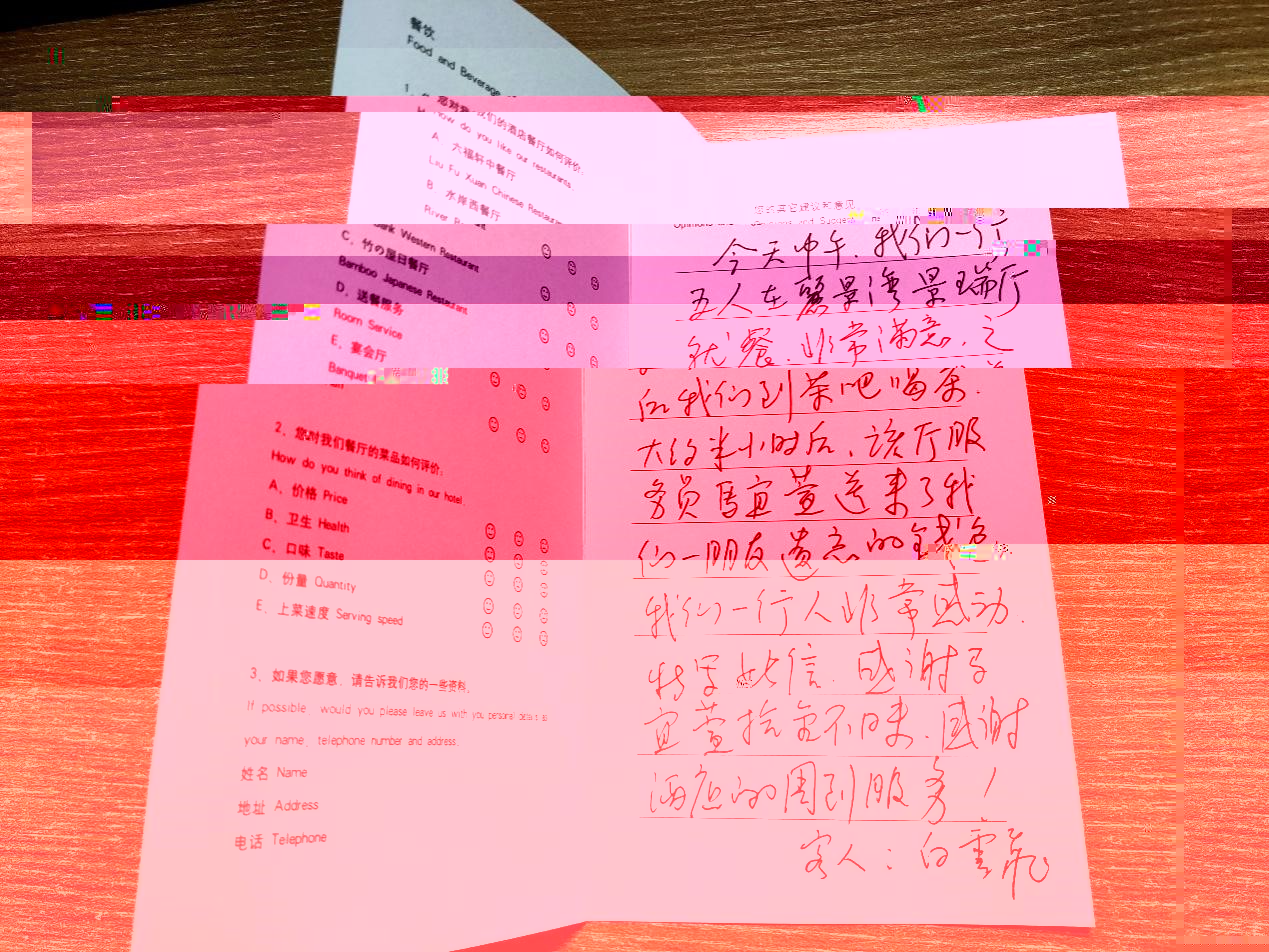 餐饮
Food and Beverage
1、您对我们的酒店餐厅如何评价:
How do you like our restaurants.
A、六福轩中餐厅
Liu Fu Xuan Chinese Restaurant
B、水岸西餐厅
River Bank Western Restaurant
C、竹の屋日餐厅
Bamboo Japanese Restaurant
D、送餐服务
Room Service
E、宴会厅
Banquet
2、您对我们餐厅的菜品如何评价:
How do you think of dining in our hotel.
A、价格 Price
B、卫生 Health
C、口味 Taste
D、份量 Quantity
E、上菜速度 Serving speed
3、如果您愿意，请告诉我们您的一些资料。
If possible, would you please leave us with you personal details as
your name, telephone number and address.
姓名 Name
地址 Address
电话 Telephone
您的其它建议和意见
今天中午，我们一行
五人在丽景湾景瑞厅
就餐，非常满意，之
后我们到茶吧喝茶.
大约半小时后，该厅服
务员马宜萱送来了我
们一朋友遗忘的钱包
我们一行人非常感动.
特写此信，感谢马
宜萱拾金不昧，感谢
酒店的周到服务！
客人：白雲飞